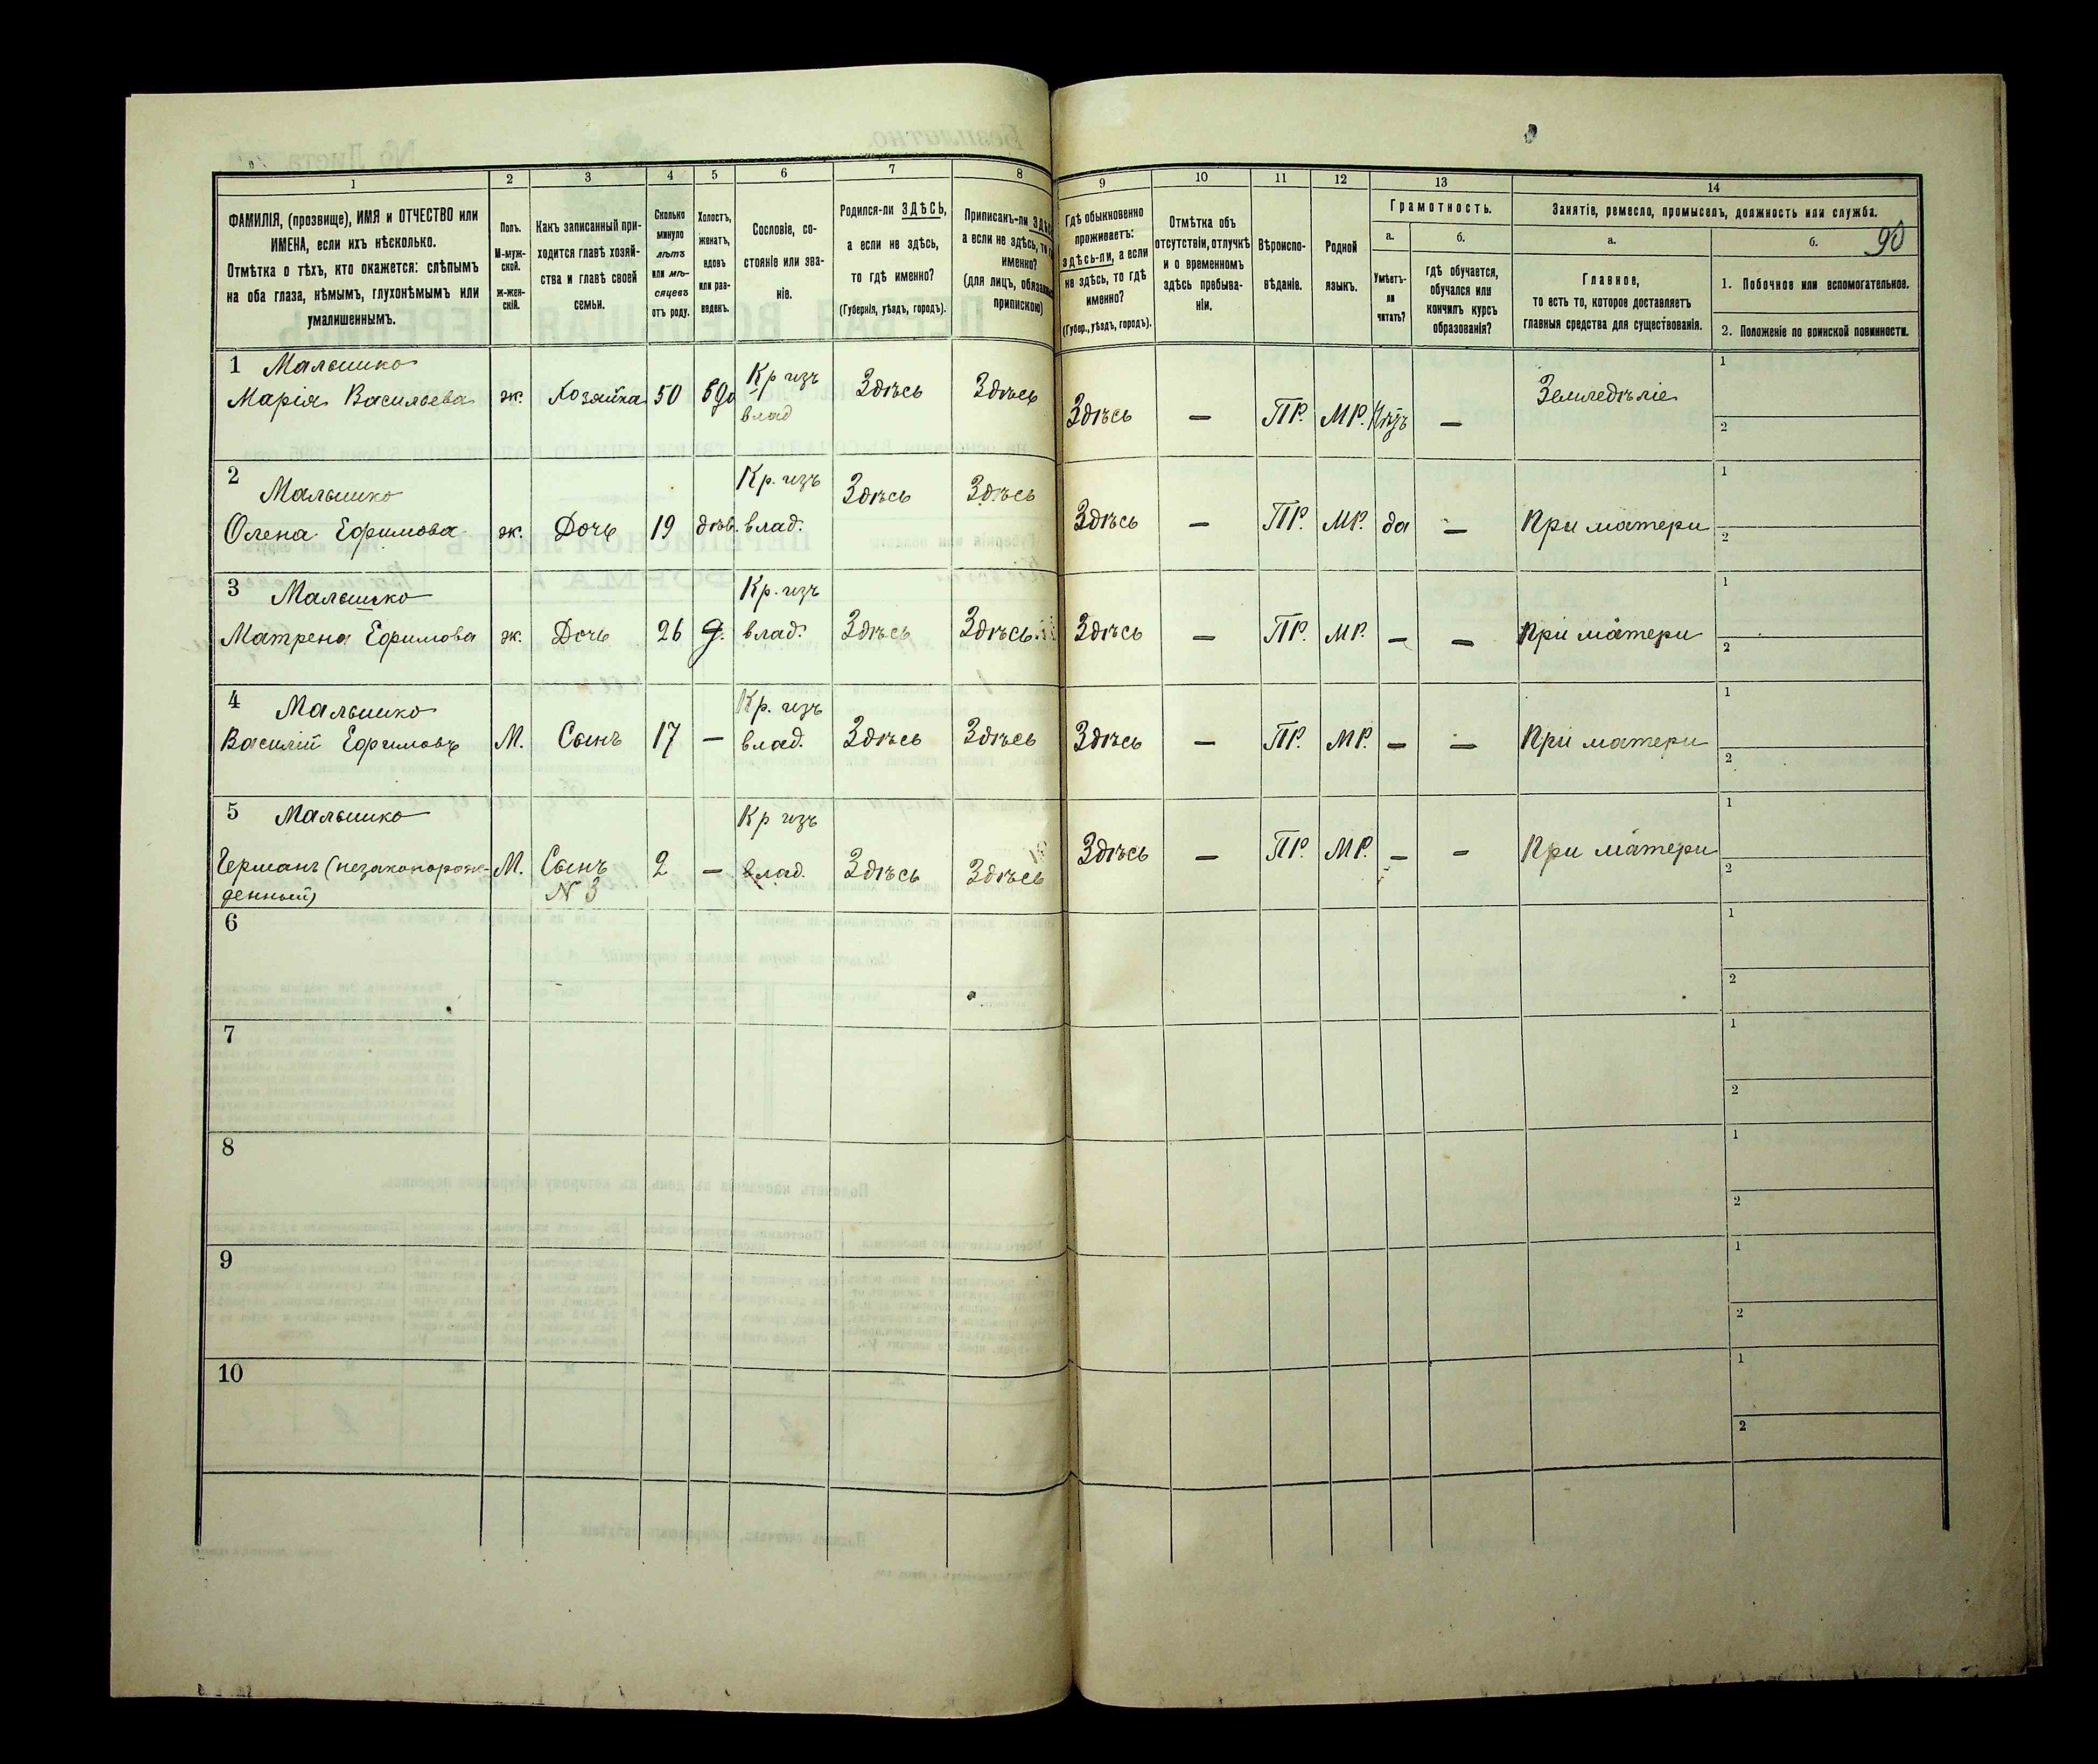 1 2 3 4 5 6 7 8 9 10 11 12 13 14
ФАМИЛІЯ, (прозвище), ИМЯ и ОТЧЕСТВО или
ИМЕНА, если ихъ нѣсколько.
Отмѣтка о тѣхъ, кто окажется: слѣпымъ
на оба глаза, нѣмымъ, глухонѣмымъ или
умалишеннымъ.
Полъ.
М-муж-
ской.
ж-жен-
скій.
Какъ записанный при-
ходится главѣ хозяй-
ства и главѣ своей
семьи.
Сколько
минуло
лѣтъ
или мѣ-
сяцевъ
отъ роду.
Холостъ,
женатъ,
вдовъ
или раз-
веденъ.
Сословіе, со-
стояніе или зва-
ніе.
Родился-ли ЗДѢСЬ,
а если не здѣсь,
то гдѣ именно?
(Губернія, уѣздъ, городъ).
Приписанъ-ли
а если не здѣсь, то
именно?
(для лицъ,
припискою)
Гдѣ обыкновенно
проживаетъ:
здѣсь-ли, а если
не здѣсь, то гдѣ
именно?
(Губер., уѣздъ, городъ).
Отмѣтка объ
отсутствіи, отлучкѣ
и о временномъ
здѣсь пребыва-
ніи.
Вѣроиспо-
вѣданіе.
Родной
языкъ.
Грамотность.
а. б.
Умѣетъ-
ли
читать?
гдѣ обучается,
обучался или
кончилъ курсъ
образованія?
Занятіе, ремесло, промыселъ, должность или служба.
а. б. 90
Главное,
то есть то, которое доставляетъ
главныя средства для существованія.
1. Побочное или вспомогательное.
2. Положеніе по воинской повинности.
1 Малышко Кр изъ 1
Марія Васильева ж. Хозяйка 50 влад Здѣсь Здѣсь Здѣсь — ПР. МР. — Земледѣліе 2
2 Малышко Кр. изъ 1
Олена Ефимова ж. Дочь 19 дѣв. влад. Здѣсь Здѣсь Здѣсь — ПР. МР. да — При матери 2
3 Малышко Кр. изъ 1
Матрена Ефимова ж. Дочь 26 д. влад. Здѣсь Здѣсь. Здѣсь — ПР. МР. — — При матери 2
4 Малышко Кр. изъ 1
Василій Ефимовъ М. Сынъ 17 — влад. Здѣсь Здѣсь Здѣсь — ПР. МР. — — При матери 2
5 Малышко Кр изъ 1
Германъ (незаконорож- М. Сынъ 2 — влад. Здѣсь Здѣсь Здѣсь — ПР. МР. — — При матери 2
денный) N 3
6 1
2
7 1
2
8 1
2
9 1
2
10 1
2